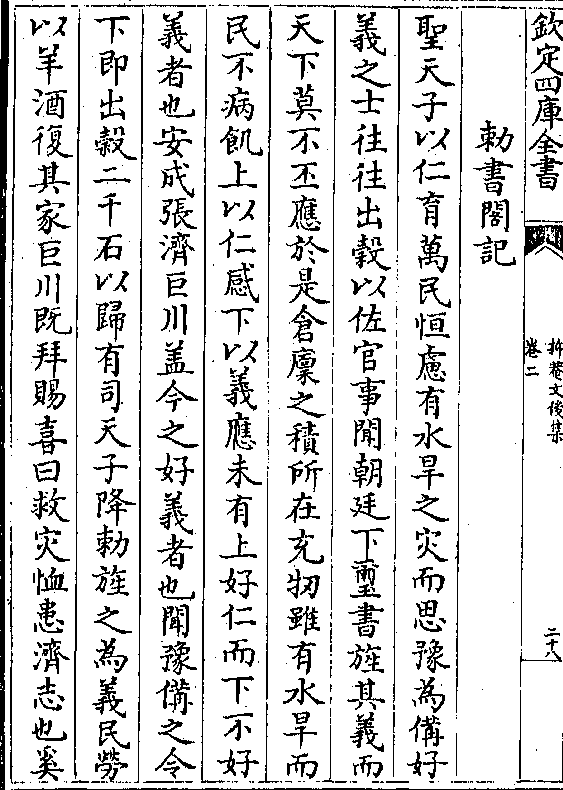 欽定四庫全書
抑菴文後集
卷二
二十八
勅書閣記
聖天子以仁育萬民恒慮有水旱之灾而思豫為備好
義之士往往出穀以佐官事聞朝廷下璽書旌其義而
天下莫不丕應於是倉廩之積所在充牣雖有水旱而
民不病飢上以仁感下以義應未有上好仁而下不好
義者也安成張濟巨川盖今之好義者也聞豫備之令
下即出穀二千石以歸有司天子降勅旌之為義民勞
以羊酒復其家巨川既拜賜喜曰救灾恤患濟志也奚